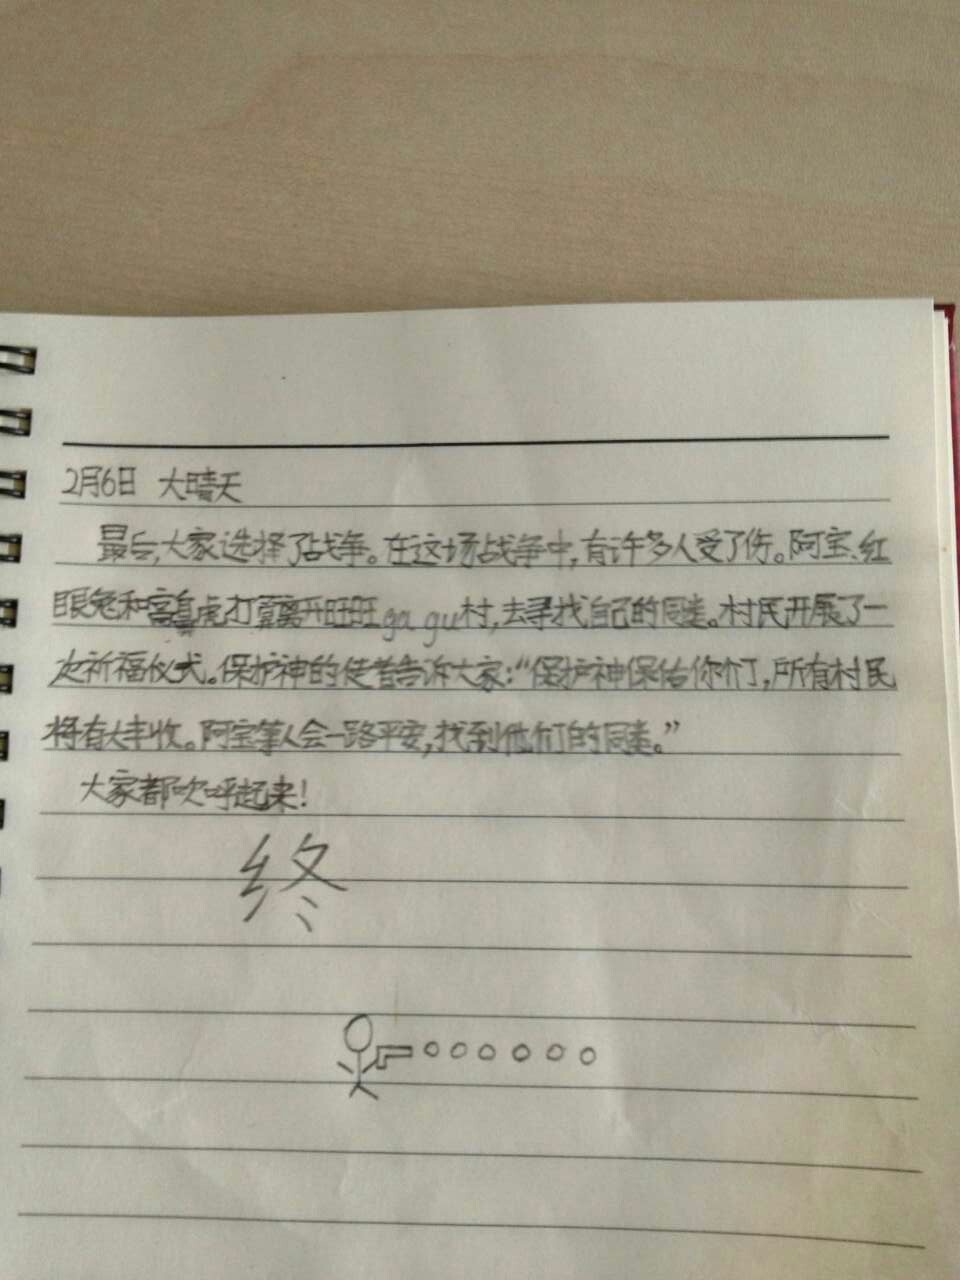 2月6日 大晴天
最后,大家选择了战争。在这场战争中,有许多人受了伤。阿宝、红
眼兔和富贵虎打算离开旺旺ga gu村,去寻找自己的同类。村民开展了一
次祈福仪式。保护神的使者告诉大家:“保护神保佑你们,所有村民
将有大丰收。阿宝等人会一路平安,找到他们的同类。”
大家都欢呼起来!
终